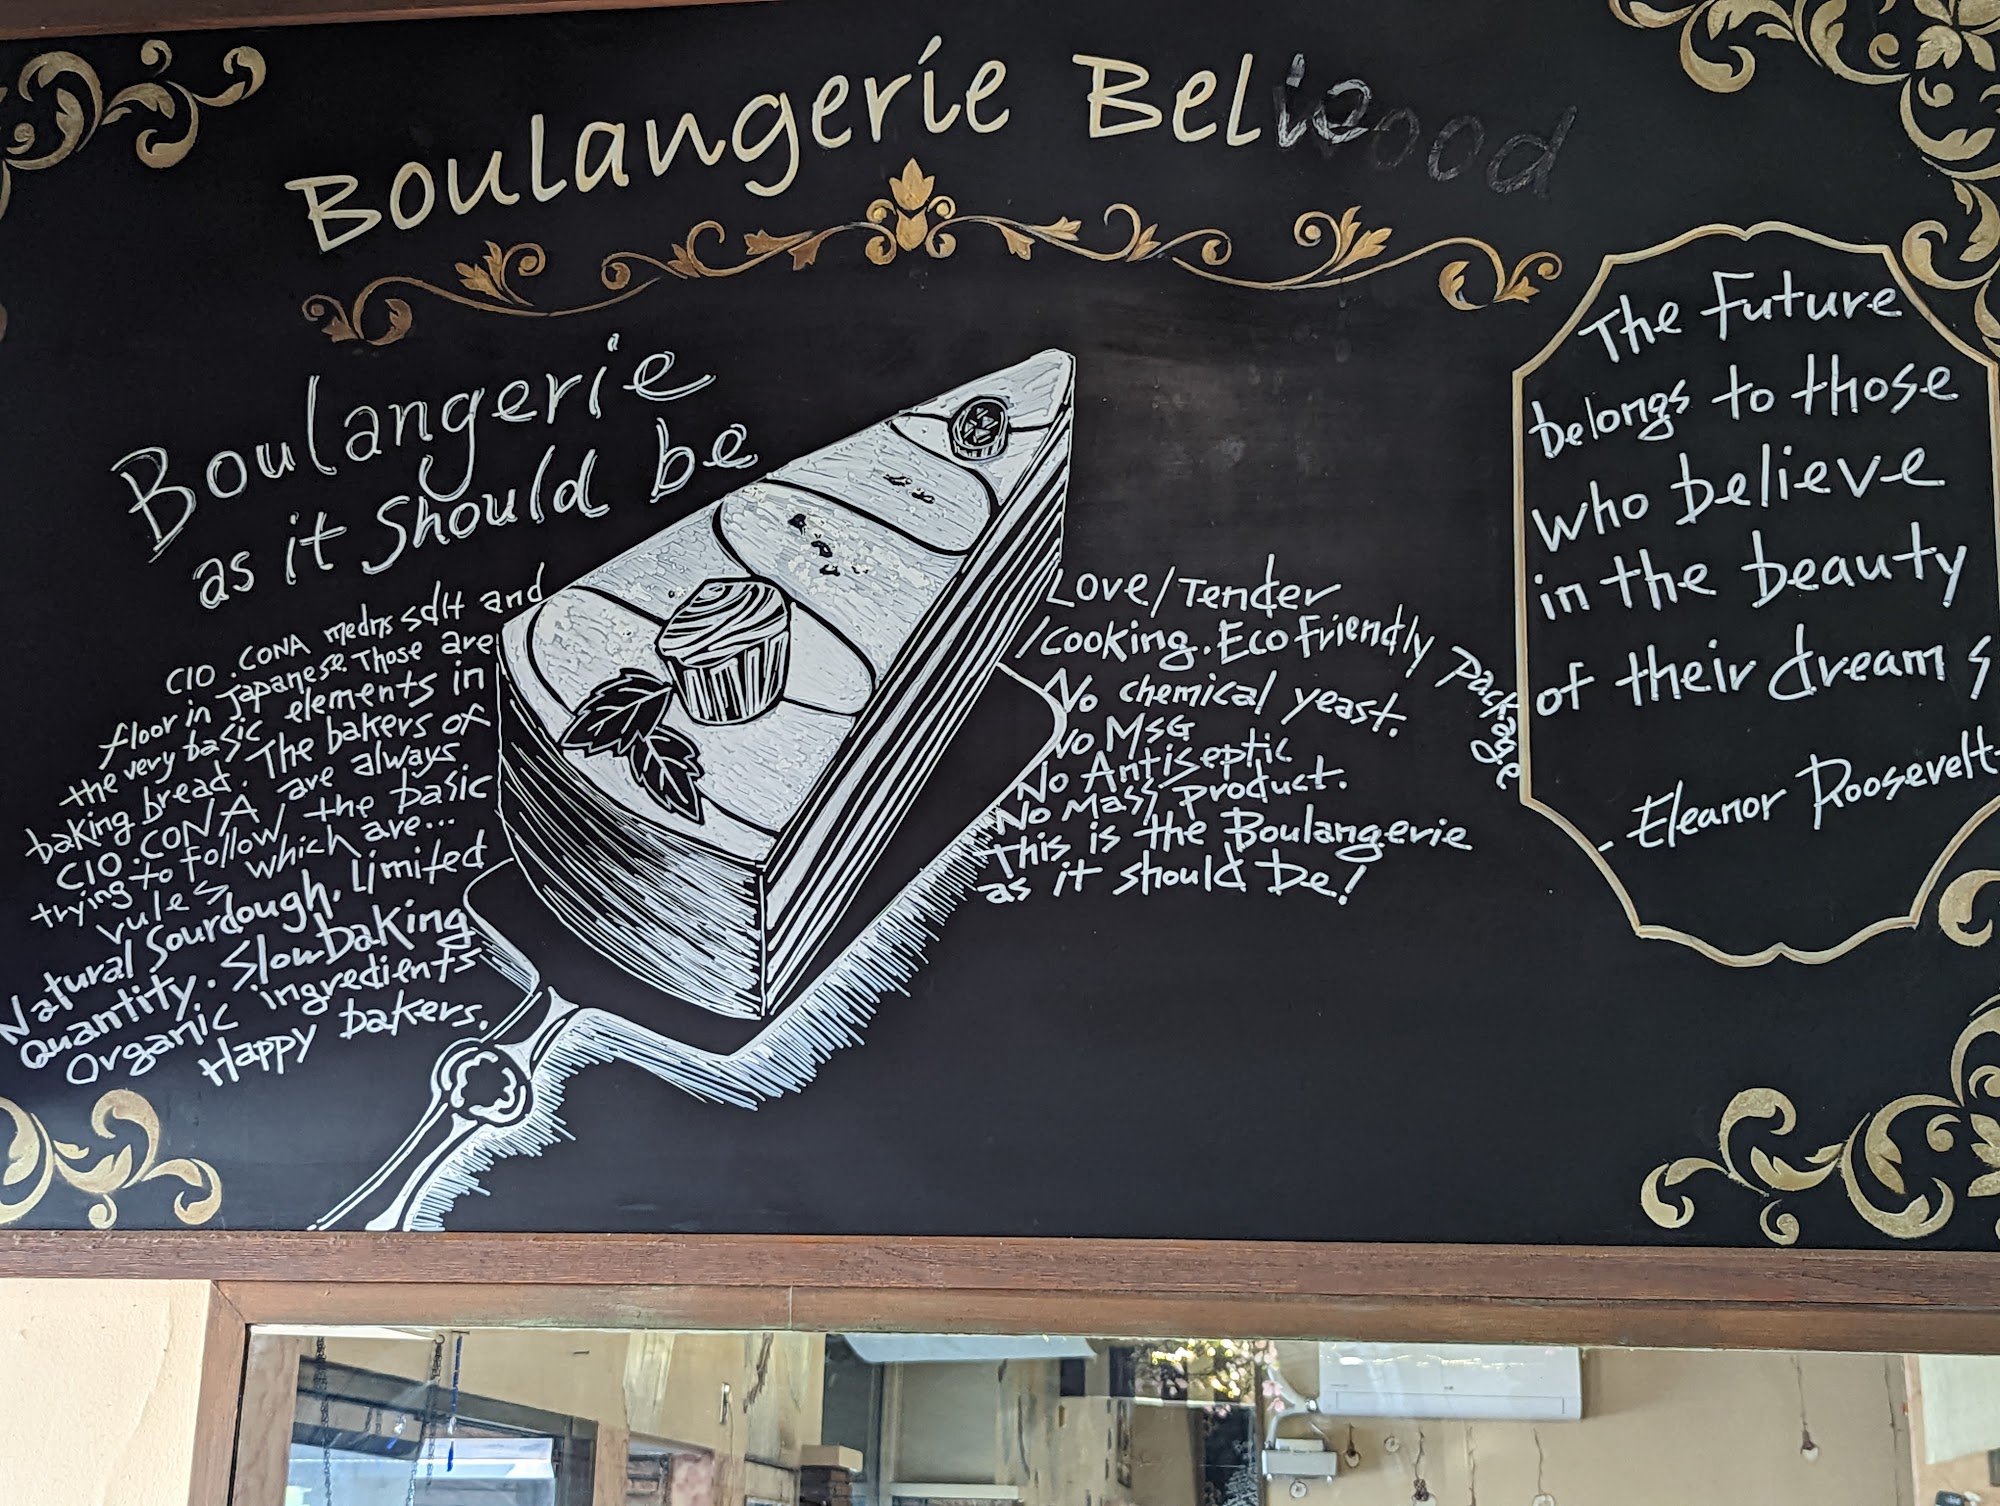 Boulangerie Bel
Boulangerie
as it should be
CIO.CONA means sdlt and
floor in Japanese. Those are
the very basic elements in
baking bread. The bakers of
CIO.CONA are always
trying to follow the basic
rules which are...
Natural Sourdough, Limited
Quantity. Slow baking
Organic ingredients
Happy bakers.
Love/Tender
/Cooking. Eco Friendly Package
No chemical yeast.
No MSG
No Antiseptic
No Mass product.
This is the Boulangerie
as it should be!
The Future
belongs to those
who believe
in the beauty
of their dreams
- Eleanor Roosevelt-